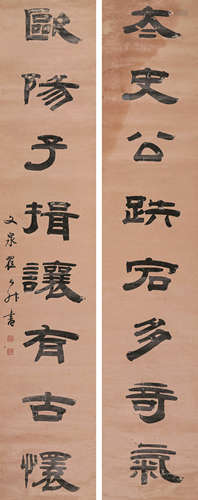 太史公跌宕多奇氣
歐陽子揖讓有古懷
文泉翟云升書